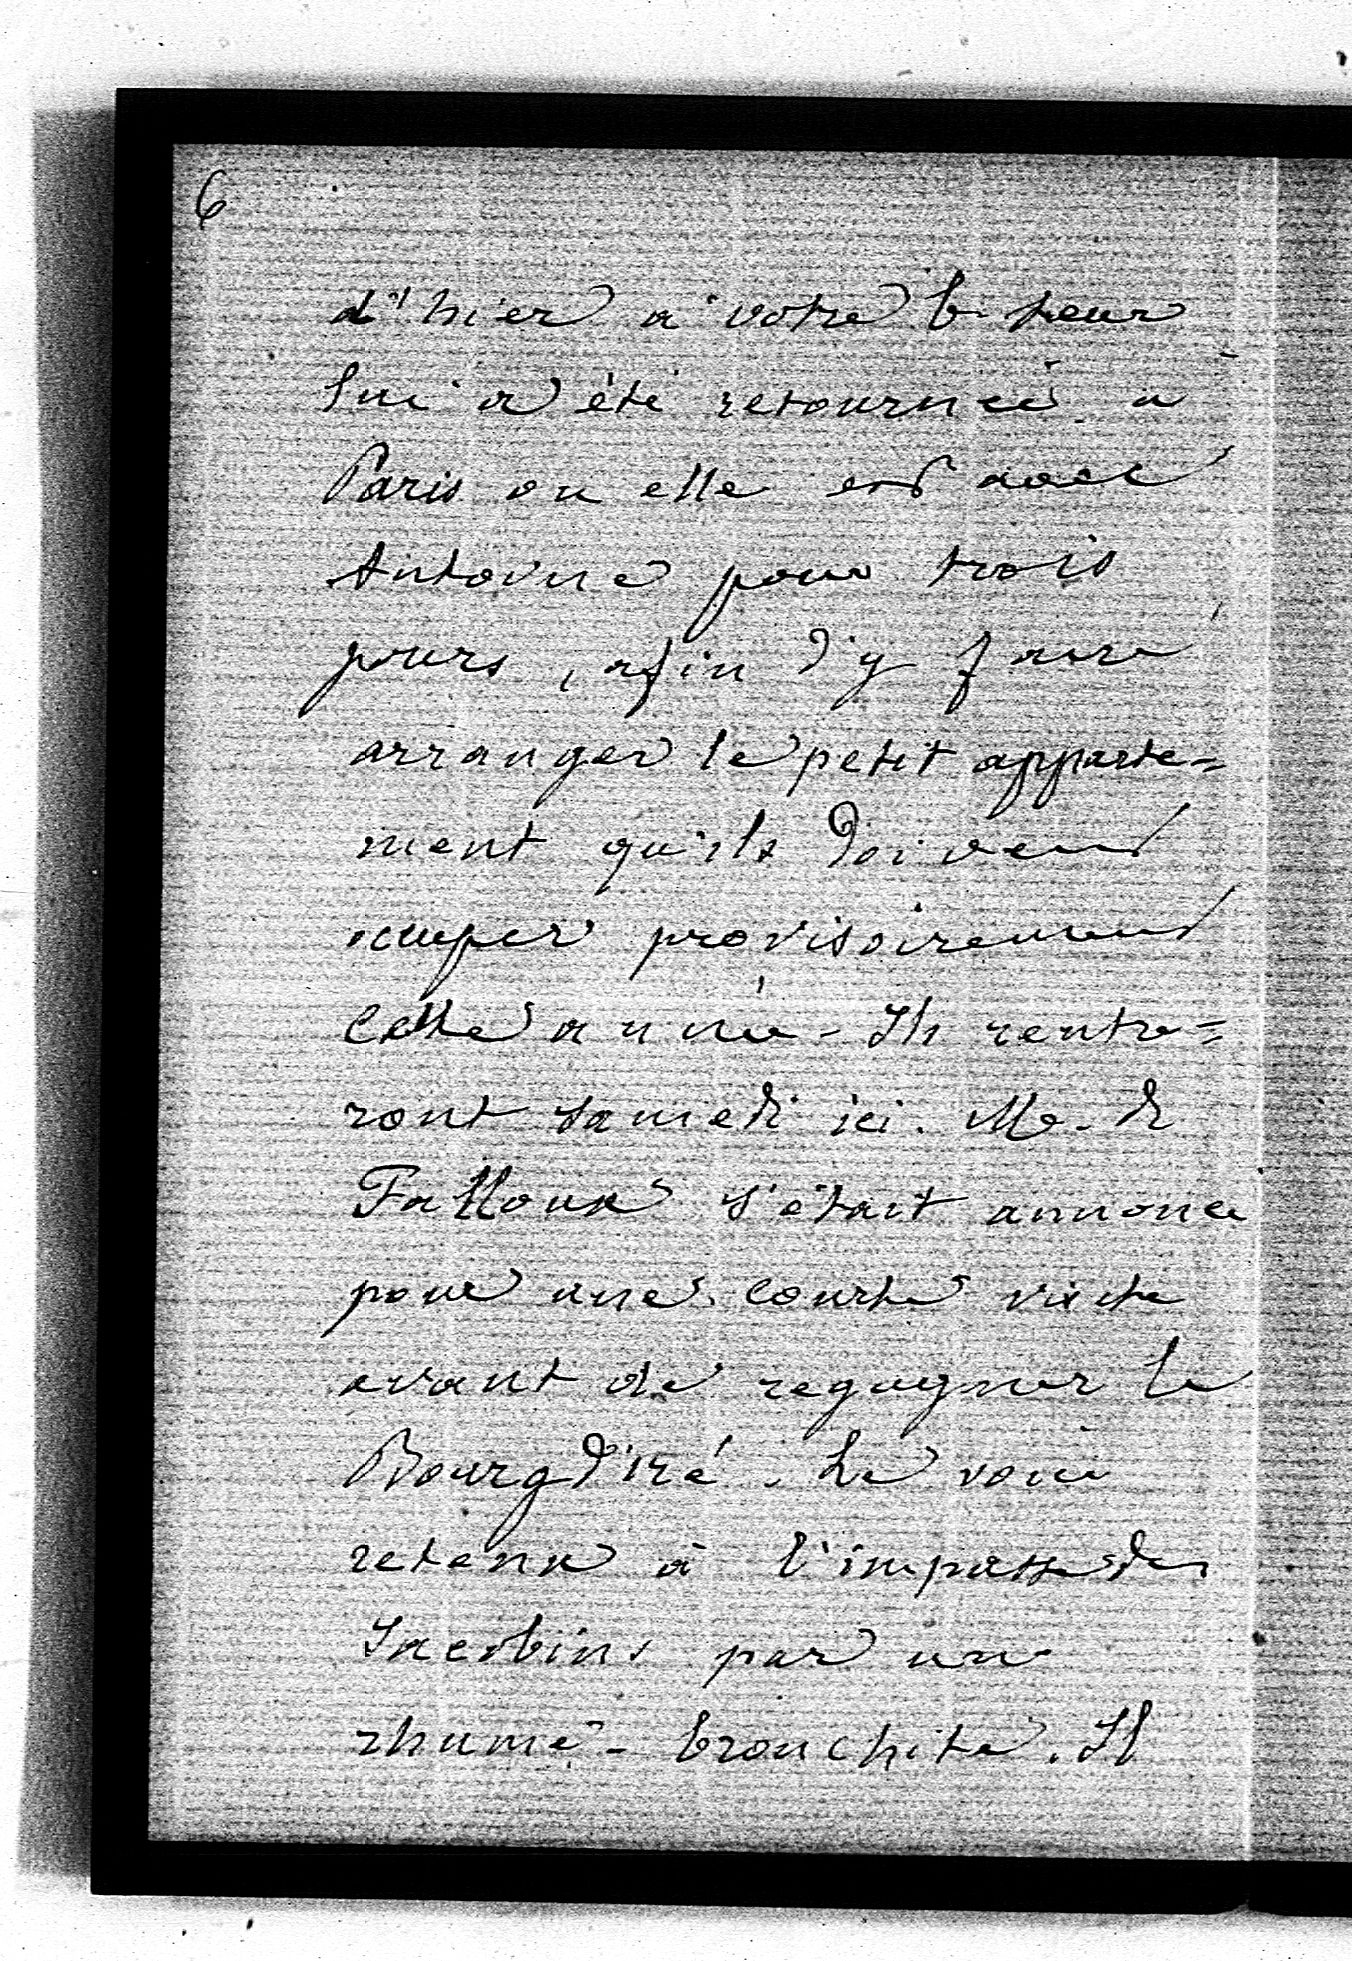 6
d'hier à votre b. soeur
lui a été retournée à
Paris ou elle est avec
Antoine pour trois
jours, afin d'y faire
arranger le petit apparte=
ment qu'ils doivent
occuper provisoirement
cette année - Ils rentre=
ront samedi ici. M. de
Falloux s'était annoncé
pour une courte visite
avant de regagner le
Bourg d'iré. Le voici
retenu à l'impasse des
Jacobins par un
rhume - bronchite. Il